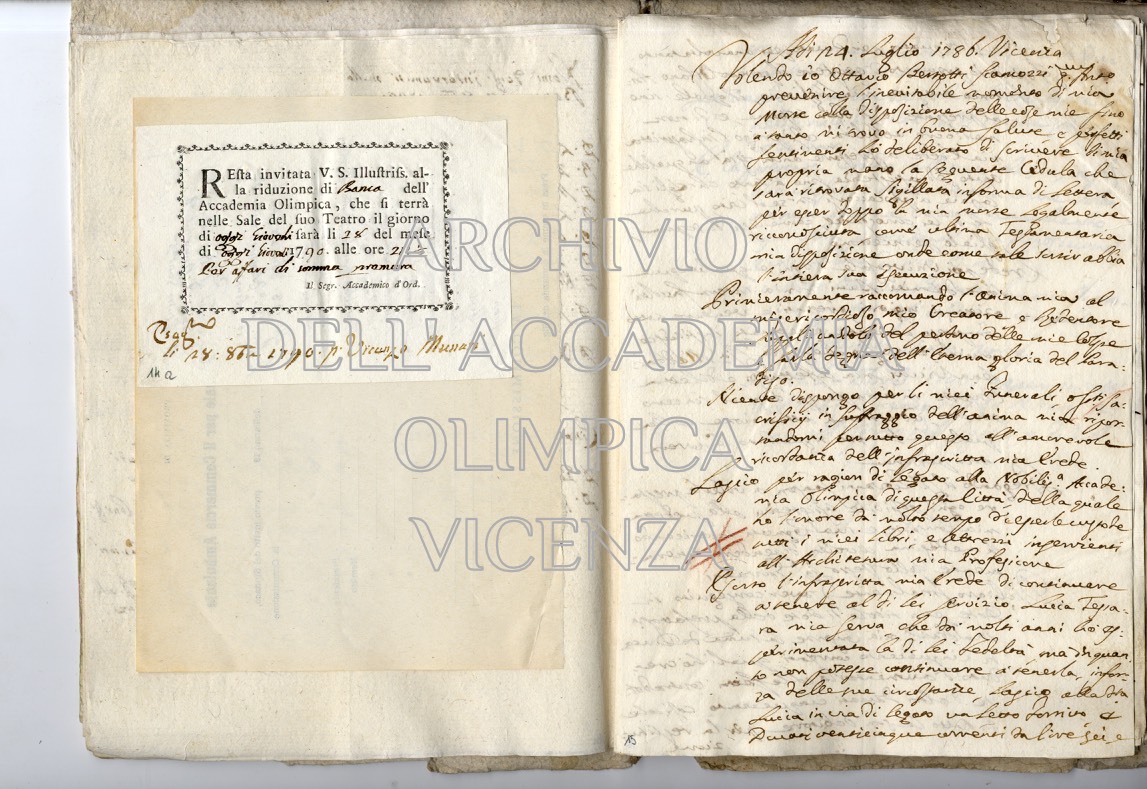 REſta invitata V. S. Illuſtriſs. al-
la riduzione di Banca dell'
Accademia Olimpica, che ſi terrà
nelle Sale del ſuo Teatro il giorno
di oggi Giovedì ſarà li 28 del meſe
di 1790. alle ore 21
Per affari di somma premura
Il Segr. Accademico d'Ord.
li 28: 8bre 1790. Vicenzo
14 a
Adi 24. Luglio 1786. Vicenza
Volendo io Ottavio Bertotti Scamozzi
prevenire l'inevitabile momento di mia
Morte colla disposizione delle cose mie fino
a tanto mi trovo in buona salute e perfetti
sentimenti hò deliberato di scrivere di mia
propria mano la seguente Cedula che
sarà ritrovata sigillata in forma di Lettera
per esser doppo la mia morte legalmente
riconosciuta come ultima Testamentaria
mia disposizione onde come tale sortir abbia
l'intiera sua esecuzione
Primieramente raccomando l'Anima mia al
misericordioso mio Creatore e Redentore
del perdono delle mie Colpe
e farla degna dell'Eterna gloria del Para-
diso.
Niente dispongo per li miei Funerali o Sa-
crificij in suffraggio dell'anima mia ripor-
tandomi per tutto questo all'amorevole
ricordanza dell'infrascritta mia Erede.
Lascio per ragion di Legato alla Nobiliss.a Acade-
mia Olimpica di questa Città, della quale
hò l'onore da molto tempo di esserle custode
tutti i miei Libri, e attrezzi inservienti
all'Architetura mia Professione
Esorto l'infrascritta mia Erede di continuare
a tenere al di lei servizio Lucia Tessa-
ra mia serva che da molti anni hò es-
perimentata la di lei Fedeltà, ma in quan-
to non potesse continuare a tenerla,
delle sue circostanze, Lascio alla
Lucia in via di legato un Letto fornito e
Ducati venticinque correnti da lire sei e
15
ARCHIVIO
DELL'ACCADEMIA
OLIMPICA
VICENZA